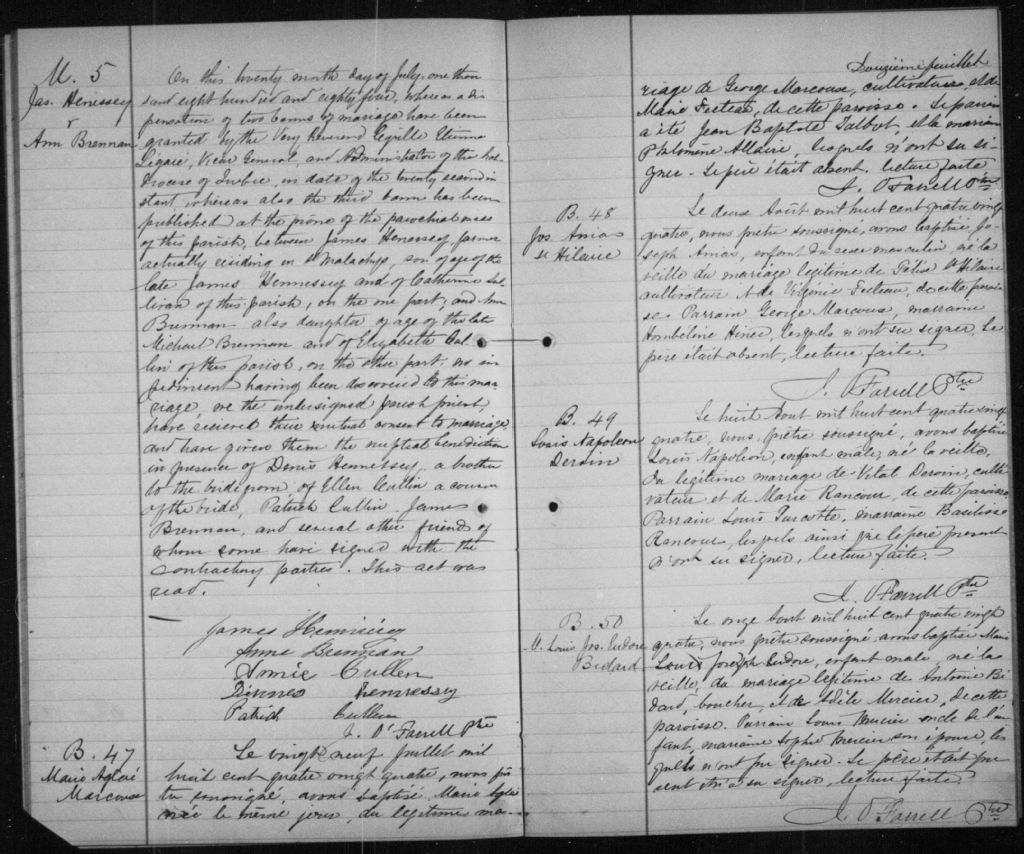 M. 5
Jas. Henessey
&
Ann Brennan
On this twenty ninth day of July, one thou
sand eight hundred and eighty four, whereas a dis
pensation of two banns of marriage have been
granted by the Very Reverend Cyrille Etienne
Légaré, Vicar General, and Administrator of the Arch
diocese of Quebec, in date of the twenty second in
stant, whereas also the third bann has been
published at the prone of the parochial mass
of this parish, between James Henessey, farmer
actually residing in St Malachy, son of age of the
late James Hennessey and of Catherine Sul
livan of this parish, on the one part; and Ann
Brennan also daughter of age of the late
Michael Brennan and of Elizabeth Cul
lin of this parish, on the other part; no im
pediment having been discovered to this mar
riage, we the undersigned parish priest,
have received their mutual consent to marriage
and have given them the nuptial benediction
in presence of Denis Hennessey, a brother
to the bridegroom, of Ellen Cullin a cousin
of the bride, Patrick Cullin, James
Brennan, and several other friends of
whom some have signed with the
contracting parties. This act was
read.
James Hennissey
Anne Brennan
Annie Cullen
Dinnes Hennessy
Patrick Cullen
J. O'Farrell Ptre
B. 47
Marie Aglaé
Marcoux
Le vingt neuf Juillet mil
huit cent quatre vingt quatre, nous prê
tre soussigné, avons baptisé Marie Aglaé
née le même jour, du légitime ma-
Douzième feuillet
riage de George Marcoux, cultivateur, et de
Marie Fecteau, de cette paroisse. Le parrain
a été Jean Baptiste Talbot, et la marraine
Philomène Allaire, lesquels n'ont su si-
gner. Le père était absent. lecture faite
J. O'Farrell Ptre
B. 48
Jos. Amas
St Hilaire
Le deux Août mil huit cent quatre vingt
quatre, nous prêtre soussigné, avons baptisé Jo
seph Amas, enfant du sexe masculin, né la
veille du mariage légitime de Félix St Hilaire
cultivateur et de Virginie Fecteau, de cette parois
se. Parrain George Marcoux, marraine
Hombéline Hince, lesquels n'ont su signer. Le
père était absent, lecture faite.
J. O'Farrell Ptre
B. 49
Louis Napoleon
Deroin
Le huit Aout mil huit cent quatre vingt
quatre, nous prêtre soussigné, avons baptisé
Louis Napoléon, enfant mâle, né la veille,
du légitime mariage de Vital Deroin, culti
vateur et de Marie Rancour, de cette paroisse
Parrain Louis Turcotte, marraine Basilisse
Rancour, lesquels ainsi que le père présent
n'ont su signer, lecture faite.
J. O'Farrell Ptre
B. 50
M. Louis Jos. Eudore
Bédard
Le onze Aout mil huit cent quatre vingt
quatre, nous prêtre soussigné avons baptisé Marie
Louis Joseph Eudore, enfant male, né la
veille, du mariage légitime de Antoine Bé
dard, boucher, et de Adèle Mercier, de cette
paroisse. Parrain Louis Mercier oncle de l'en
fant, marraine Sophie Mercier son épouse, les
quels n'ont pu signer. Le père était pré
sent su signer, lecture faite.
J. O'Farrell Ptre